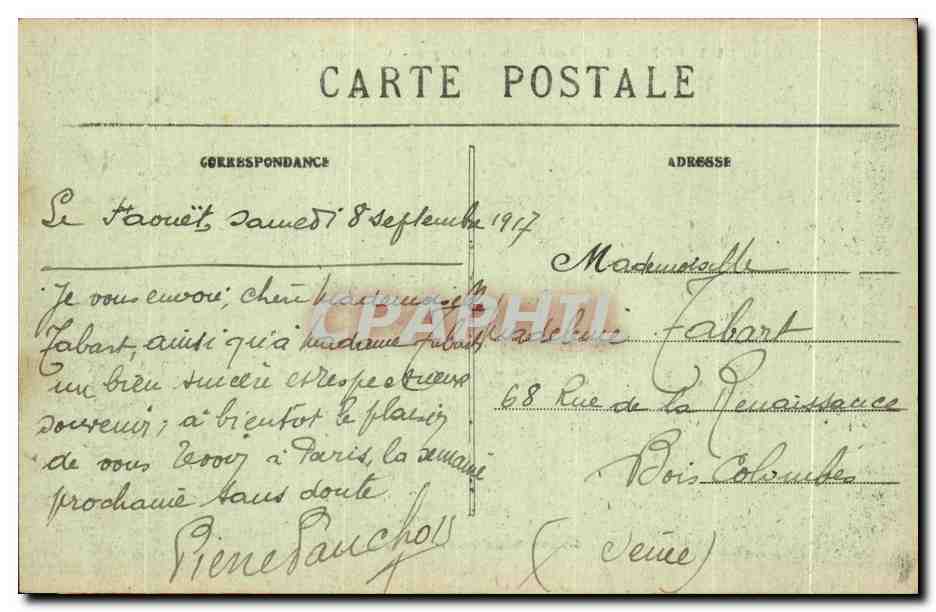 CARTE POSTALE
CORRESPONDANCE
Le Faouët, samedi 8 septembre 1917
Je vous envoie, chère Mademoiselle
Tabart, ainsi qu'à Madame Tabart
un bien sincère et respectueux
souvenir; à bientôt le plaisir
de vous revoir à Paris, la semaine
prochaine sans doute
Pierre
ADRESSE
Mademoiselle
Madeleine Tabart
68 Rue de la Renaissance
Bois Colombes
(Seine)
CPAPHIL